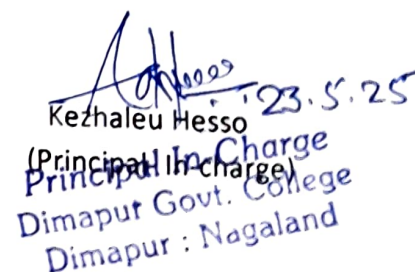 23.5.25
Kezhaleu Hesso
(Principal In-charge)
Principal In-Charge
Dimapur Govt. College
Dimapur : Nagaland